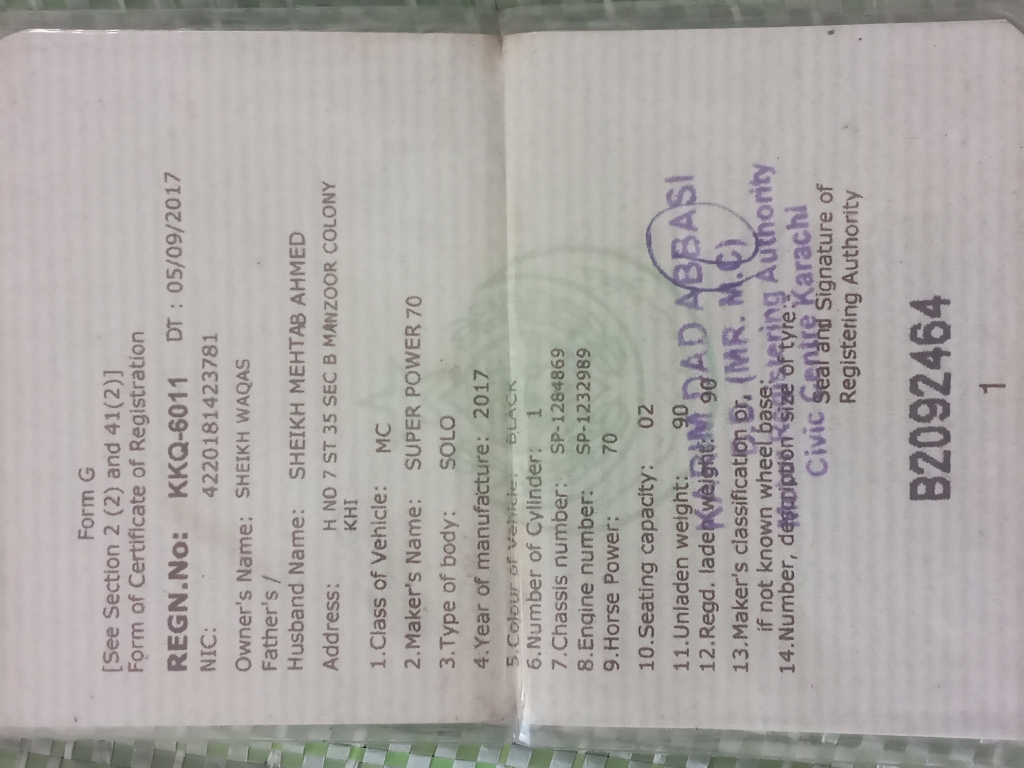 Form G
[See Section 2 (2) and 41(2)]
Form of Certificate of Registration
REGN.No: KKQ-6011 DT : 05/09/2017
NIC: 4220181423781
Owner's Name: SHEIKH WAQAS
Father's /
Husband Name: SHEIKH MEHTAB AHMED
Address: H NO 7 ST 35 SEC B MANZOOR COLONY
KHI
1.Class of Vehicle: MC
2.Maker's Name: SUPER POWER 70
3.Type of body: SOLO
4.Year of manufacture: 2017
5.Colour of Vehicle: BLACK
6.Number of Cylinder: 1
7.Chassis number: SP-1284869
8.Engine number: SP-1232989
9.Horse Power: 70
10.Seating capacity: 02
11.Unladen weight: 90
12.Regd. laden weight: 90
KARIM DAD ABBASI
13.Maker's classification or,
(MR. M.C)
if not known wheel base:
Registering Authority
14.Number, description size of tyre:
Civic Centre Karachi
Seal and Signature of
Registering Authority
B2092464
1